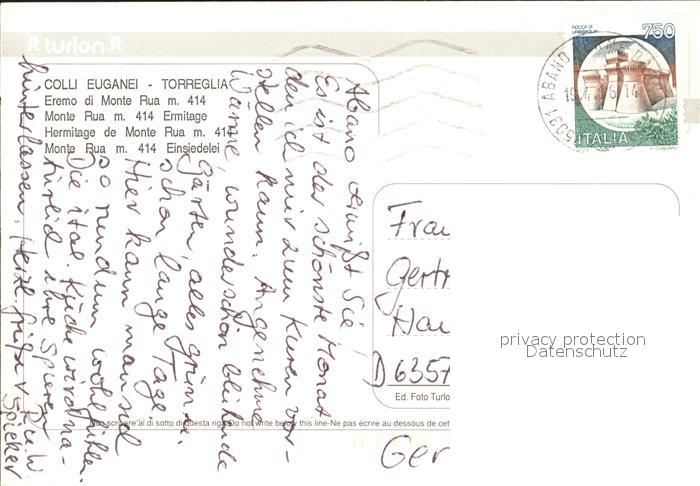 turlon
COLLI EUGANEI - TORREGLIA
Eremo di Monte Rua m. 414
Monte Rua m. 414 Ermitage
Hermitage de Monte Rua m. 414
Monte Rua m. 414 Einsiedelei
Abano grüßt Sie!
Es ist der schönste Monat
den ich mir zum Kuren vor-
stellen kann. Angenehme
Wärme, wunderschön blühende
Gärten, alles grün u.
schon lange Tage.
Hier kann man sich
so rundum wohlfühlen.
Die ital. Küche wird na-
türlich ihre Spuren
hinterlassen. Herzl. Grüße v.
Spieker
ROCCA DI
URBISAGLIA
750
ITALIA
35031 ABANO
Frau
Gertr
Hau
D 6357
Ed. Foto Turlo
Non scrivere al di sotto di questa riga-Do not write below this line-Ne pas écrire au dessous de cet
Ger
privacy protection
Datenschutz